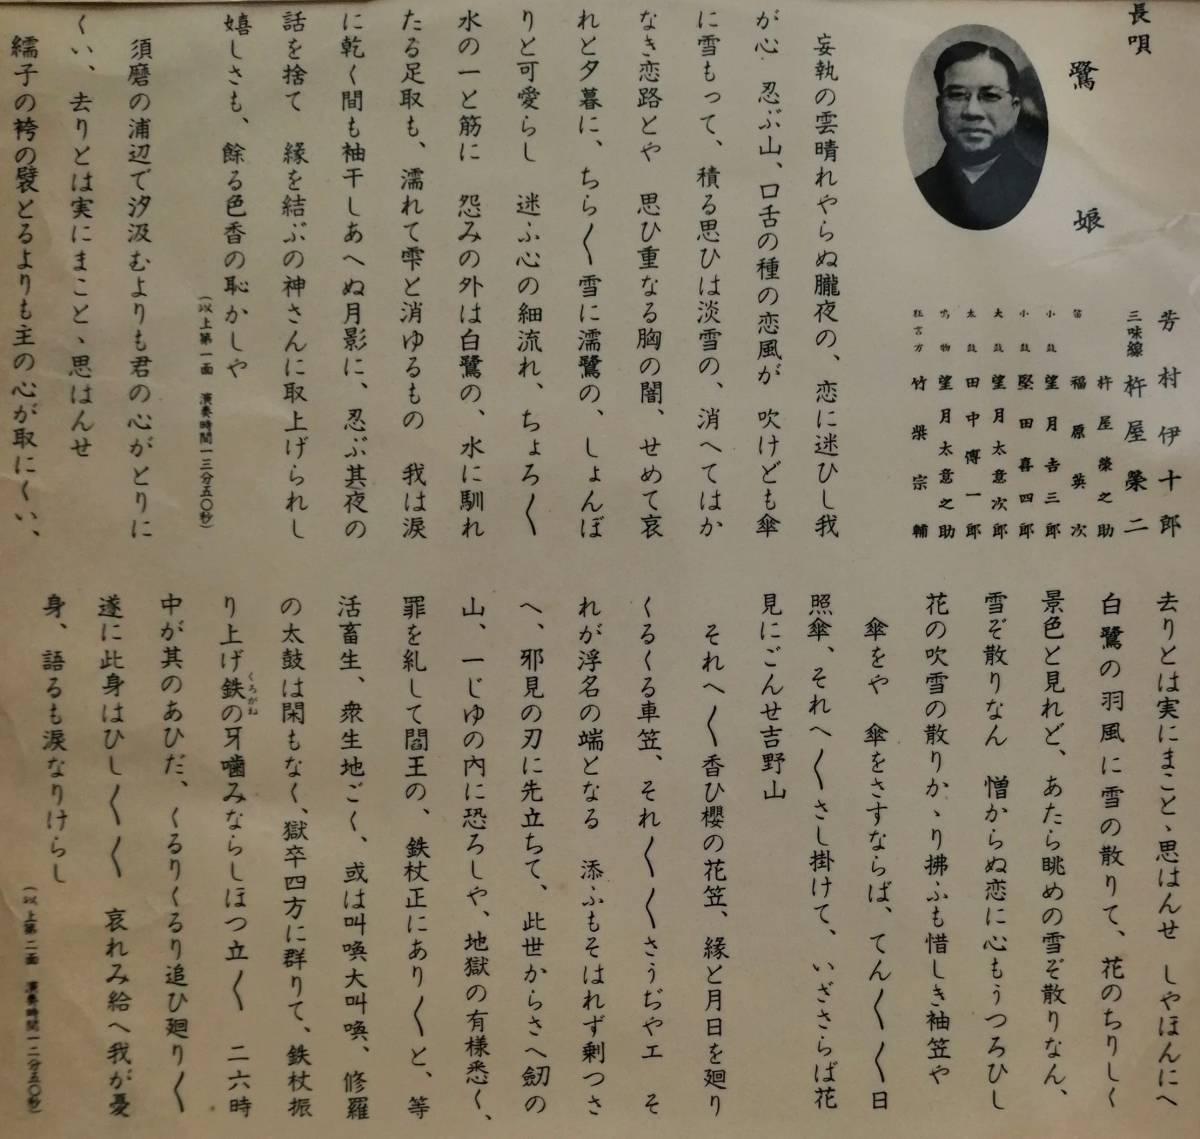 長唄
鷺娘
芳村伊十郎
三味線 杵屋榮二
杵屋榮之助
笛 福原英次
小鼓 望月吉三郎
小鼓 堅田喜四郎
大鼓 望月太意次郎
太鼓 田中傳一郎
鳴物 望月太意之助
狂言方 竹柴宗輔
妄執の雲晴れやらぬ朧夜の、恋に迷ひし我
が心　忍ぶ山、口舌の種の恋風が　吹けども傘
に雪もって、積る思ひは淡雪の、消へてはか
なき恋路とや　思ひ重なる胸の闇、せめて哀
れと夕暮に、ちら〱雪に濡鷺の、しょんぼ
りと可愛らし　迷ふ心の細流れ、ちょろ〱
水の一と筋に　怨みの外は白鷺の、水に馴れ
たる足取も、濡れて雫と消ゆるもの　我は涙
に乾く間も袖干しあへぬ月影に、忍ぶ其夜の
話を捨て　緣を結ぶの神さんに取上げられし
嬉しさも、餘る色香の恥かしや
（以上第一面　演奏時間一三分五〇秒）
須磨の浦辺で汐汲むよりも君の心がとりに
くい、去りとは実にまことゝ思はんせ
繻子の袴の襞とるよりも主の心が取にくい、
去りとは実にまことゝ思はんせ　しやほんにへ
白鷺の羽風に雪の散りて、花のちりしく
景色と見れど、あたら眺めの雪ぞ散りなん、
雪ぞ散りなん　憎からぬ恋に心もうつろひし
花の吹雪の散りかゝり拂ふも惜しき袖笠や
傘をや　傘をさすならば、てん〱〱日
照傘、それへ〱さし掛けて、いざさらば花
見にごんせ吉野山
それへ〱香ひ櫻の花笠、緣と月日を廻り
くるくる車笠、それ〱〱さうぢやエ　そ
れが浮名の端となる　添ふもそはれず剰つさ
へ、邪見の刃に先立ちて、此世からさへ劒の
山、一じゆの內に恐ろしや、地獄の有様悉く、
罪を糺して閻王の、鉄杖正にあり〱と、等
活畜生、衆生地ごく、或は叫喚大叫喚、修羅
の太鼓は閑もなく、獄卒四方に群りて、鉄杖振
り上げ鉄の牙噛みならしほつ立〱　二六時
くろがね
中が其のあひだ、くるりくるり追ひ廻り〱
遂に此身はひし〱〱　哀れみ給へ我が憂
身、語るも涙なりけらし
（以上第二面　演奏時間一二分五〇秒）